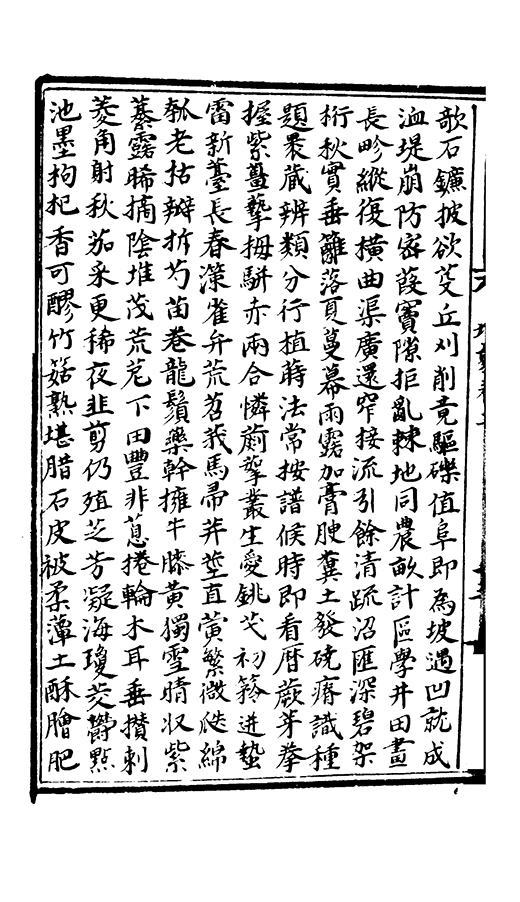 歌石鑪披欲芟丘刈削竟驅礫值阜即為坡遇凹就成
洫堤崩防密葭竇隙拒亂棘地同農畝計區學井田畫
長畛縱復橫曲渠廣還窄接流引餘清疏沼匯深碧架
桁秋實垂籬落夏蔓幕雨露加膏腴糞土發磽瘠識種
題裹藏辨類分行植蒔法常按譜候時即看曆蕨芽拳
握紫薑摯拇駢赤兩合憐葥拏叢生愛銚弋初籜迸蟄
雷新薹長春澤雀弁荒苕莪馬帚荓莖直蕢繁微瓞綿
瓠老拈瓣拆芍苗卷龍鬚藥幹擁牛膝黃獨雪晴收紫
綦露晞摘陰堆茂荒芜下田豐非蒠捲輪木耳垂攢刺
菱角射秋茄采更稀夜韭剪仍殖芝芳凝海瓊芡鬱點
池墨枸杞香可醪竹菇熟堪腊石皮被柔薄土酥膾肥